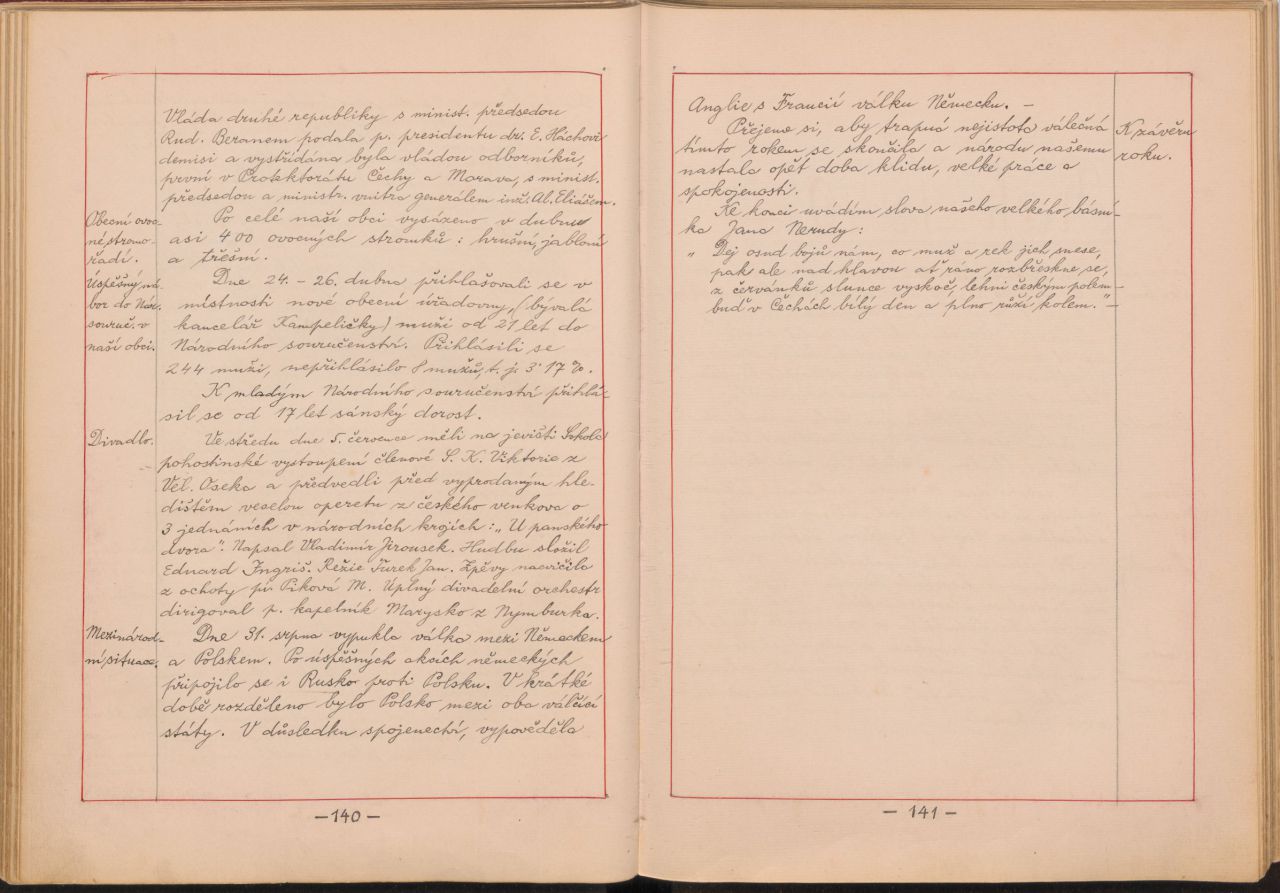 Vláda druhé republiky s minist. předsedou
Rud. Beranem podala p. presidentu dr. E. Háchovi
demisi a vystřídána byla vládou odborníků,
první v Protektorátu Čechy a Morava, s minist.
předsedou a ministr. vnitra generálem inž. Al. Eliášem.
Obecní ovoc-
né stromo-
řadí.
Po celé naší obci vysázeno v dubnu
asi 400 ovocných stromků : hrušní, jabloní
a třešní.
Úspěšný ná-
bor do Nár.
souruč. v
naší obci.
Dne 24. - 26. dubna přihlašovali se v
místnosti nové obecní úřadovny, (bývalá
kancelář Kampeličky) muži od 21 let do
Národního souručenství. Přihlásili se
244 muži, nepřihlásilo 8 mužů, t. j. 3·17 %.
K mladým Národního souručenství přihlá-
sil se od 17 let sánský dorost.
Divadlo.
Ve středu dne 5. července měli na jevišti Sokola
pohostinské vystoupení členové S. K. Viktorie z
Vel. Oseka a předvedli před vyprodaným hle-
dištěm veselou operetu z českého venkova o
3 jednáních v národních krojích : „U panského
dvora". Napsal Vladimír Jirousek. Hudbu složil
Eduard Ingriš. Režie Turek Jan. Zpěvy nacvičila
z ochoty pí. Piková M. Úplný divadelní orchestr
dirigoval p. kapelník Marysko z Nymburka.
Mezinárod-
ní situace.
Dne 31. srpna vypukla válka mezi Německem
a Polskem. Po úspěšných akcích německých
připojilo se i Rusko proti Polsku. V krátké
době rozděleno bylo Polsko mezi oba válčící
státy. V důsledku spojenectví, vypověděla
- 140 -
Anglie s Francií válku Německu. -
K závěru
roku.
Přejeme si, aby trapná nejistota válečná
tímto rokem se skončila a národu našemu
nastala opět doba klidu, velké práce a
spokojenosti.
Ke konci uvádím slova našeho velkého básní-
ka Jana Nerudy :
„ Dej osud bojů nám, co muž a rek jich snese,
pak ale nad hlavou ať ráno rozbřeskne se,
z červánků slunce vyskoč, lehni českým polem-
buď v Čechách bílý den a plno růží kolem." -
- 141 -